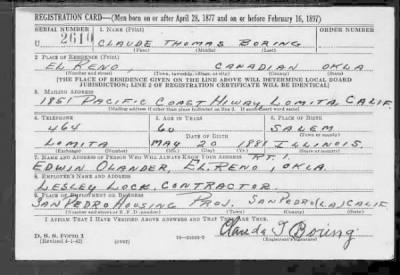 REGISTRATION CARD—(Men born on or after April 28, 1877 and on or before February 16, 1897)
SERIAL NUMBER 1. NAME (Print) ORDER NUMBER
U 2610 CLAUDE THOMAS BORING
(First) (Middle) (Last)
2. PLACE OF RESIDENCE (Print)
EL RENO, CANADIAN OKLA
(Number and street) (Town, township, village, or city) (County) (State)
[THE PLACE OF RESIDENCE GIVEN ON THE LINE ABOVE WILL DETERMINE LOCAL BOARD
JURISDICTION; LINE 2 OF REGISTRATION CERTIFICATE WILL BE IDENTICAL]
3. MAILING ADDRESS
1851 PACIFIC COAST HIWAY, LOMITA, CALIF.
[Mailing address if other than place indicated on line 2. If same insert word same]
4. TELEPHONE 5. AGE IN YEARS 6. PLACE OF BIRTH
464 60 SALEM
DATE OF BIRTH (Town or county)
LOMITA MAY 20 1881 ILLINOIS.
(Exchange) (Number) (Mo.) (Day) (Yr.) (State or country)
7. NAME AND ADDRESS OF PERSON WHO WILL ALWAYS KNOW YOUR ADDRESS RT. 1.
EDWIN OLANDER, EL RENO, OKLA.
8. EMPLOYER'S NAME AND ADDRESS
LESLEY LOCK, CONTRACTOR.
9. PLACE OF EMPLOYMENT OR BUSINESS
SAN PEDRO HOUSING PROJ. SAN PEDRO (LA) CALIF
(Number and street or R. F. D. number) (Town) (County) (State)
I AFFIRM THAT I HAVE VERIFIED ABOVE ANSWERS AND THAT THEY ARE TRUE.
D. S. S. Form 1
(Revised 4-1-42) (over) Claude T. Boring
(Registrant's signature)